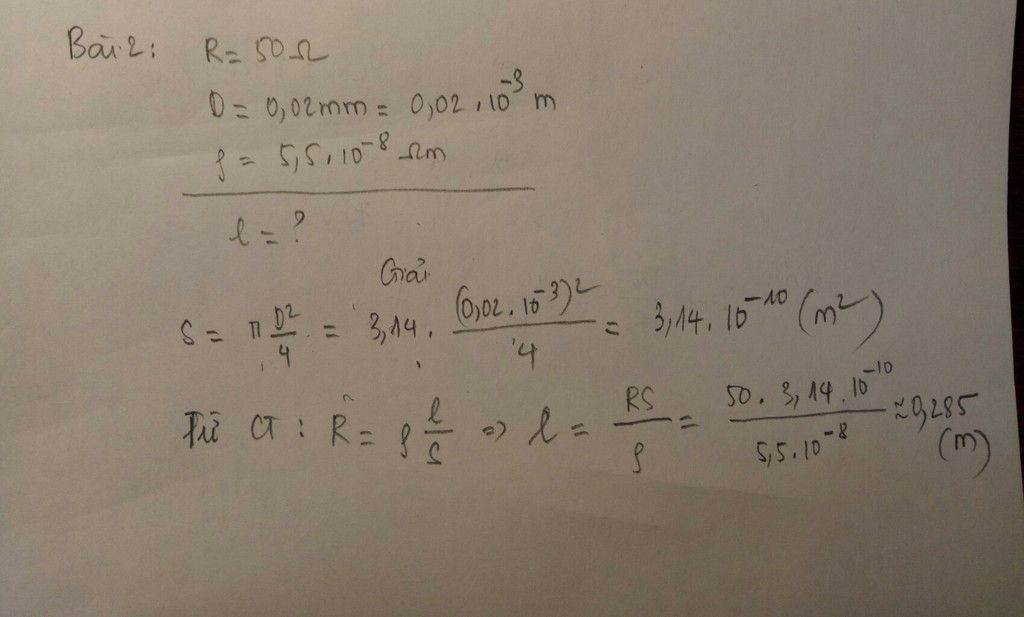 Bài 2: R = 50Ω
D = 0,02mm = 0,02 . 10⁻³ m
ρ = 5,5 . 10⁻⁸ Ωm
l = ?
Giải
S = π D²/4 = 3,14 . (0,02 . 10⁻³)²/4 = 3,14 . 10⁻¹⁰ (m²)
Từ CT : R = ρ l/S => l = RS/ρ = 50 . 3,14 . 10⁻¹⁰/5,5 . 10⁻⁸ ≈ 0,285 (m)